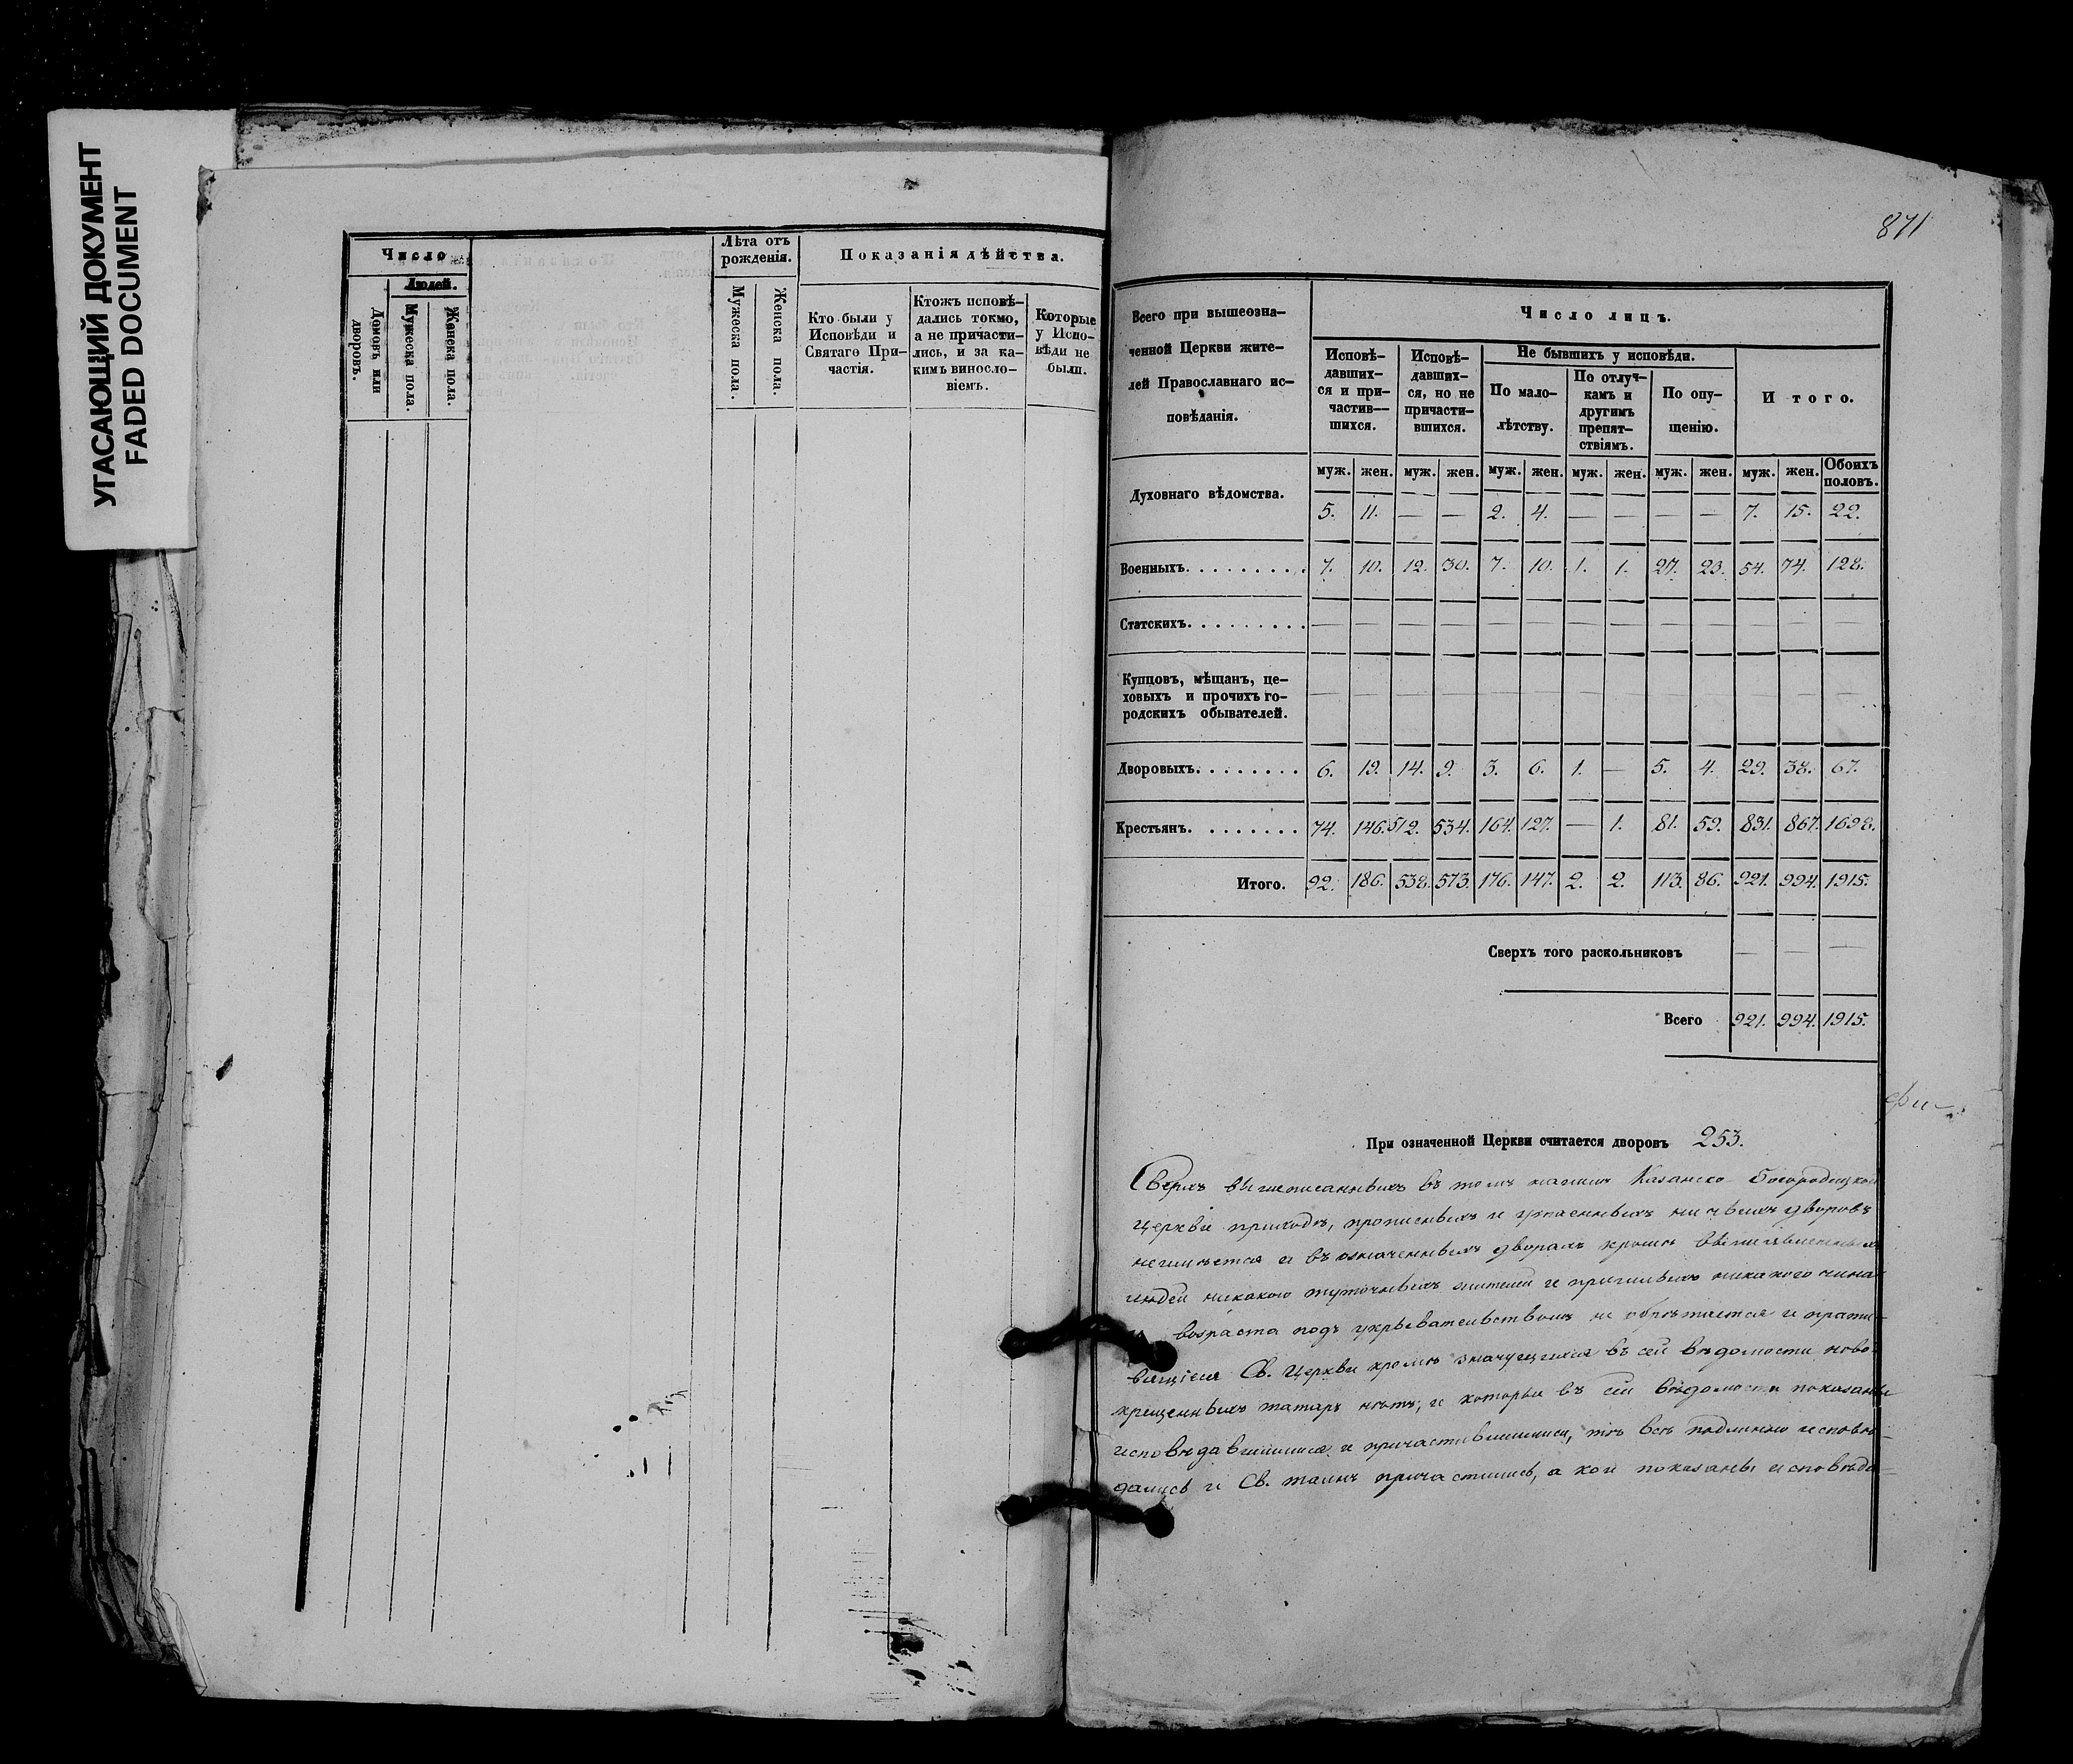 УГАСАЮЩИЙ ДОКУМЕНТ
FADED DOCUMENT
Число
Людей.
Домовъ или дворовъ.
Мужеска пола.
Женска пола.
Лѣта отъ рожденія.
Мужеска пола.
Женска пола.
Показанія дѣйства.
Кто были у
Исповѣди и
Святаго При-
частія.
Ктожъ исповѣ-
дались токмо,
а не причасти-
лись, и за ка-
кимъ винносло-
віемъ.
Которые
у Испо-
вѣди не
были.
871
Всего при вышеозна-
ченной Церкви жите-
лей Православнаго ис-
повѣданія.
Число лицъ.
Исповѣ-
давших-
ся и при-
частив-
шихся.
Исповѣ-
давших-
ся, но не
причасти-
вшихся.
Не бывшихъ у исповѣди.
По мало-
лѣтству.
По отлуч-
камъ и
другимъ
препят-
ствіямъ.
По опу-
щенію.
И того.
муж. жен. муж. жен. муж. жен. муж. жен. муж. жен. муж. жен. Обоихъ половъ.
Духовнаго вѣдомства. 5. 11. — — 2. 4. — — — — 7. 15. 22.
Военныхъ. . . . . . . . . . 7. 10. 12. 30. 7. 10. 1. 1. 27. 23. 54. 74. 128.
Статскихъ. . . . . . . . . . — — — — — — — — — — — — —
Купцовъ, мѣщанъ, це-
ховыхъ и прочихъ го- — — — — — — — — — — — — —
родскихъ обывателей.
Дворовыхъ. . . . . . . . 6. 19. 14. 9. 3. 6. 1. — 5. 4. 29. 38. 67.
Крестьянъ. . . . . . . . 74. 146. 512. 534. 164. 127. — 1. 81. 59. 831. 867. 1698.
Итого. 92. 186. 538. 573. 176. 147. 2. 2. 113. 86. 921. 994. 1915.
Сверхъ того раскольниковъ — — —
Всего 921. 994. 1915.
При означенной Церкви считается дворовъ 253.
Сверхъ вышеписанныхъ въ томъ нашемъ Казанско-Богородицкой
церкви приходѣ, прописныхъ и утаенныхъ ни чьихъ дворовъ
не имѣется и въ означенныхъ дворахъ кромѣ
людей никакого жителей и никакого чина
возраста подъ укрывательствомъ не обрѣтается и
Св. Церкви кромѣ значущихся въ сей вѣдомости ново-
крещенныхъ татаръ нѣтъ; и которые въ сей вѣдомости показаны
исповѣдавшимися и причастившимися, тѣ всѣ подлинно исповѣ-
дались и Св. таинъ причастились, а кои показаны исповѣда-